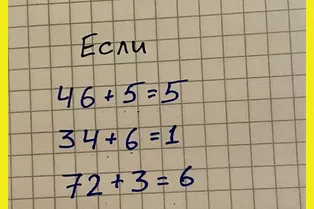 Если
46+5=5
34+6=1
72+3=6